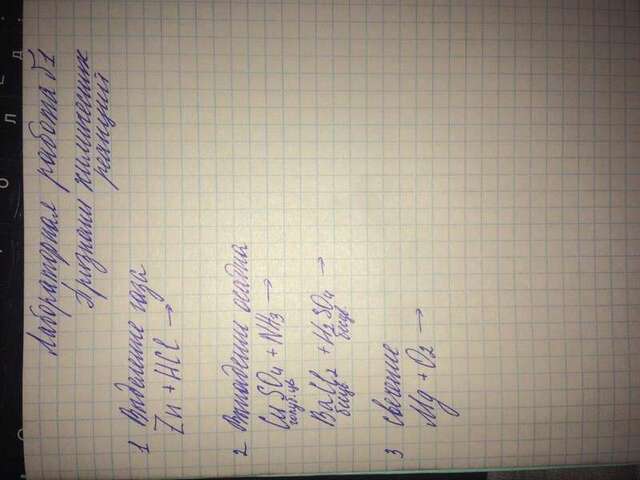 Лабораторная работа №1
Признаки химических
реакций
1 Выделение газа
Zn + HCl →
2 Выпадение осадка
CuSO4 + NH3 →
голуб.цв
BaCl2 + H2SO4 →
бецв бецв
3 Свечение
Mg + O2 →